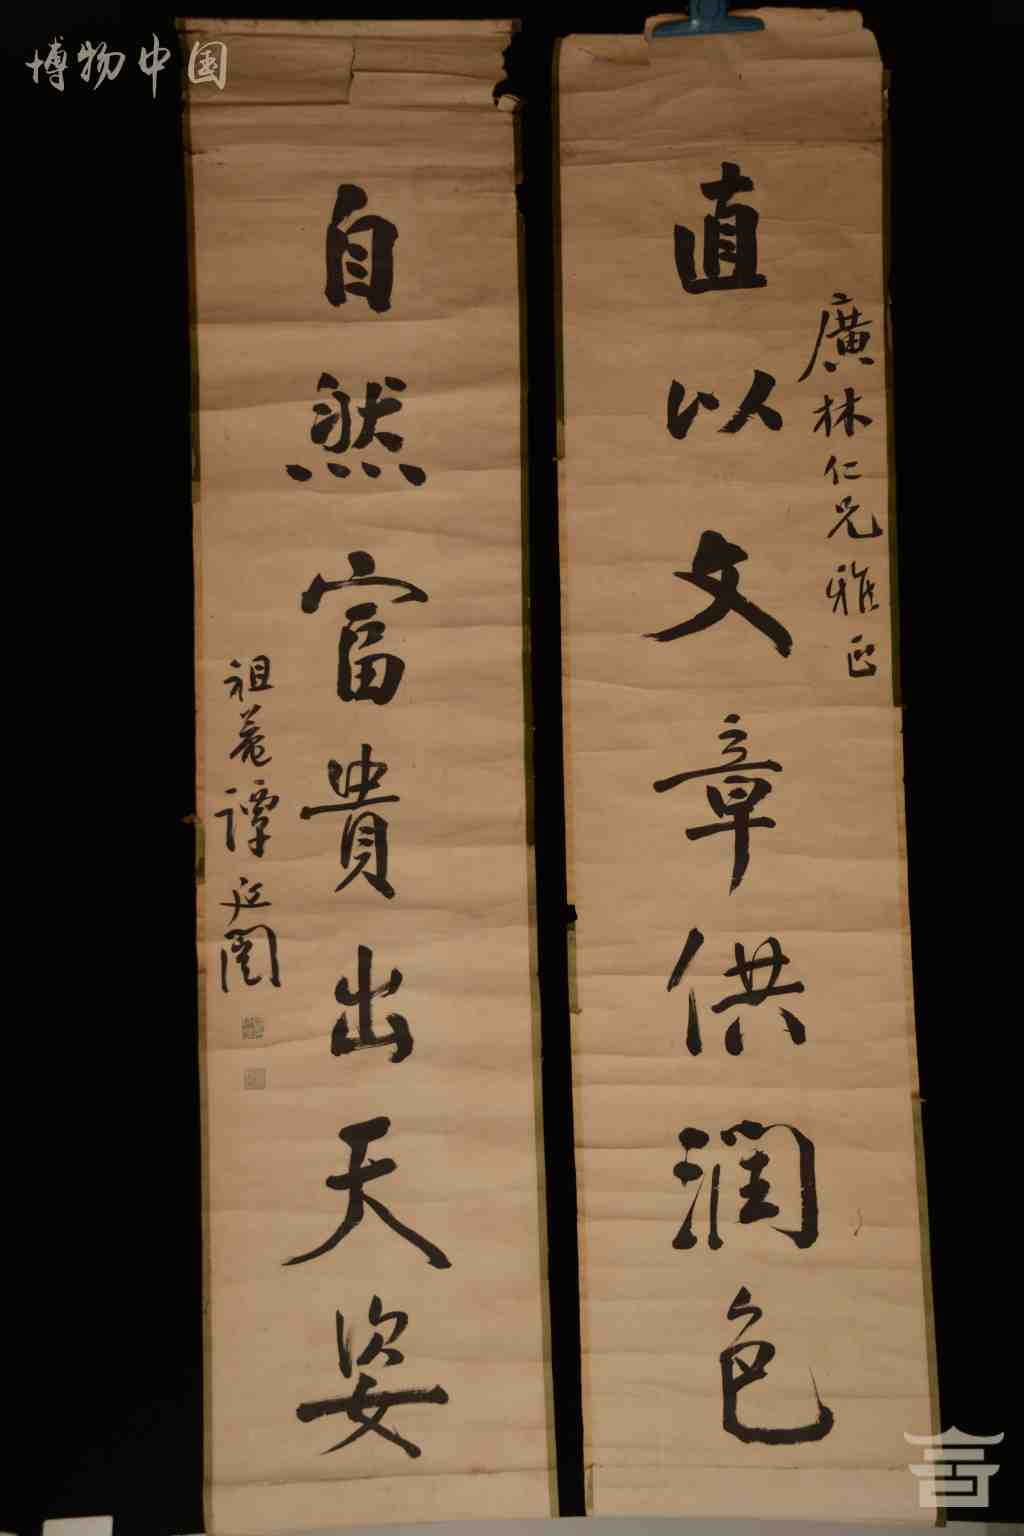 博物中国
廣林仁兄雅正
直以文章供潤色
自然富貴出天姿
祖菴譚延闓